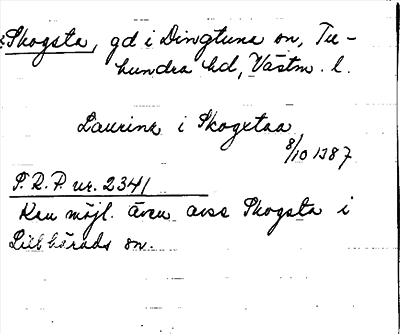 Skogsta, gd i Dingtuna sn, Tu-
hundra hd, Västm. l.
Laurinz i Skogxtaa
8/10 1387
P. R. P. nr. 2341
Kan möjl. även avse Skogsta i
Lillhärads sn.